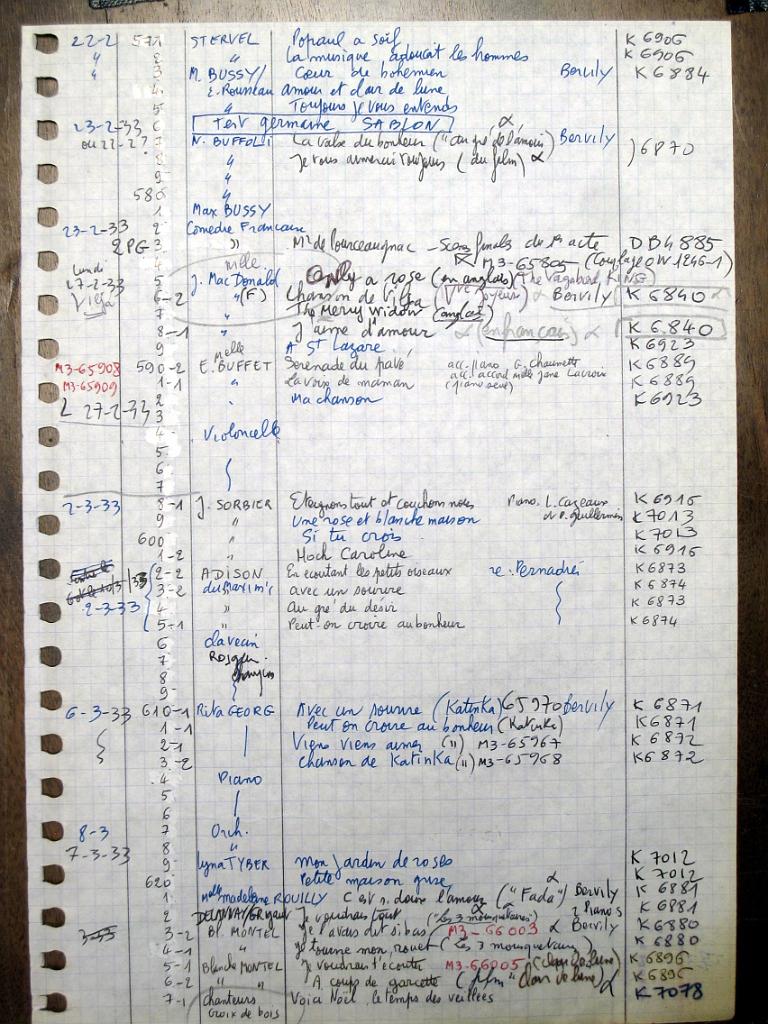 22-2 571 STERVEL Popaul a soif K 6906
" 2 " La musique adoucit les hommes K 6906
" 3 M. BUSSY/ Cœur de bohemien Bervily K 6884
4 E. Rousseau amour et clair de lune
5 " Toujours je vous entends
23-2-33 6 Test germaine SABLON
ou 22-2? 7 N. BUFFOLI La valse du bonheur ("au gré de l'amour) Bervily
8 " Je vous aimerai toujours (du film) α ) 6970
9 "
580 "
1 Max BUSSY
23-2-33 2 Comedie Francaise
2PG 3 " Mr de Pourceaugnac - Scene finale du 1r acte DB 4885
4 M3-65805 (Couplage OW 1246-1)
Lundi 27-2-33 5 melle J. MacDonald Only a rose (en anglais) (The Vagabond KING
6-2 "(F) Chanson de Vilja (Vve Joyeuse) α Bervily K 6840
7 " The Merry Widow (anglais)
8-1 " J'aime d'amour α (en francais) α K 6840
9 A St Lazare K 6923
M3-65908 590-2 melle E. BUFFET Serenade du pavé acc. piano G. Chaumette K 6889
M3-65909 1-1 " La voix de maman acc. accord melle Jane Lacroix (piano seul) K 6889
L 27-2-33 2 " Ma chanson K 6923
3
4 Violoncelle
5
6
7
2-3-33 8-1 J. SORBIER Eteignons tout et couchons nous Piano. L. Cazeaux K 6916
9 " Une rose et blanche maison et P. Guillermin K 7013
600 " Si tu crois K 7013
1-2 " Hoch Caroline K 6916
2-2 ADISON En ecoutant les petits oiseaux re. Pernadrés K 6873
3-2 avec un sourire K 6874
2-3-33 4 " Au gré du désir K 6873
5-1 " Peut-on croire au bonheur K 6874
6 clavecin
7
8
9
6-3-33 610-1 Rita GEORG Avec un sourire (Katinka) 65970 Bervily K 6871
1-1 Peut on croire au bonheur (Katinka) K 6871
2-1 Viens viens aimer (") M3-65967 K 6872
3-2 chanson de Katinka (") M3-65968 K 6872
4 Piano
5
6
8-3 7 Orch.
7-3-33 8 "
9 Lyna TYBER mon jardin de roses K 7012
620 Petite maison grise K 7012
1 Melle madeleine ROUILLY C'est si doux l'amour ("Fada") α Bervily K 6881
2 Je voudrais tout ("les 3 mousquetaires") 2 Pianos K 6881
3-2 Bl. MONTEL Je l'avais dit si bas M3-66003 α Bervily K 6880
4-1 " Je tourne mon rouet (les 3 mousquetaires) K 6880
5-1 Blanche MONTEL Je voudrais t'écouter M3-66005 (clair de lune) K 6896
6-2 A coups de garcette (film "clair de lune) α K 6896
7-1 chanteurs Voici Noël, le temps des veillées K 7078
croix de bois